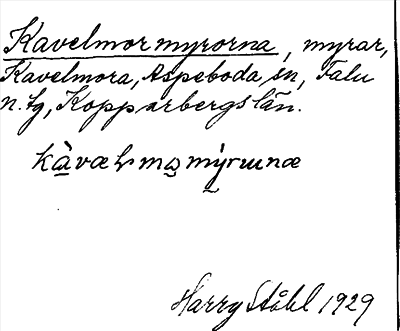 Kavelmormyrorna, myrar,
Kavelmora, Aspeboda sn, Falu
n. tg, Kopparbergs län.
Harry Ståhl 1929